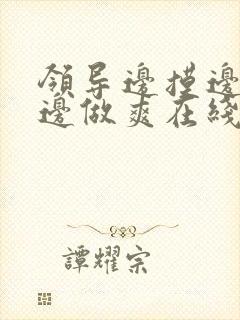 領导邊摸邊
邊做爽在綫
譚耀宗